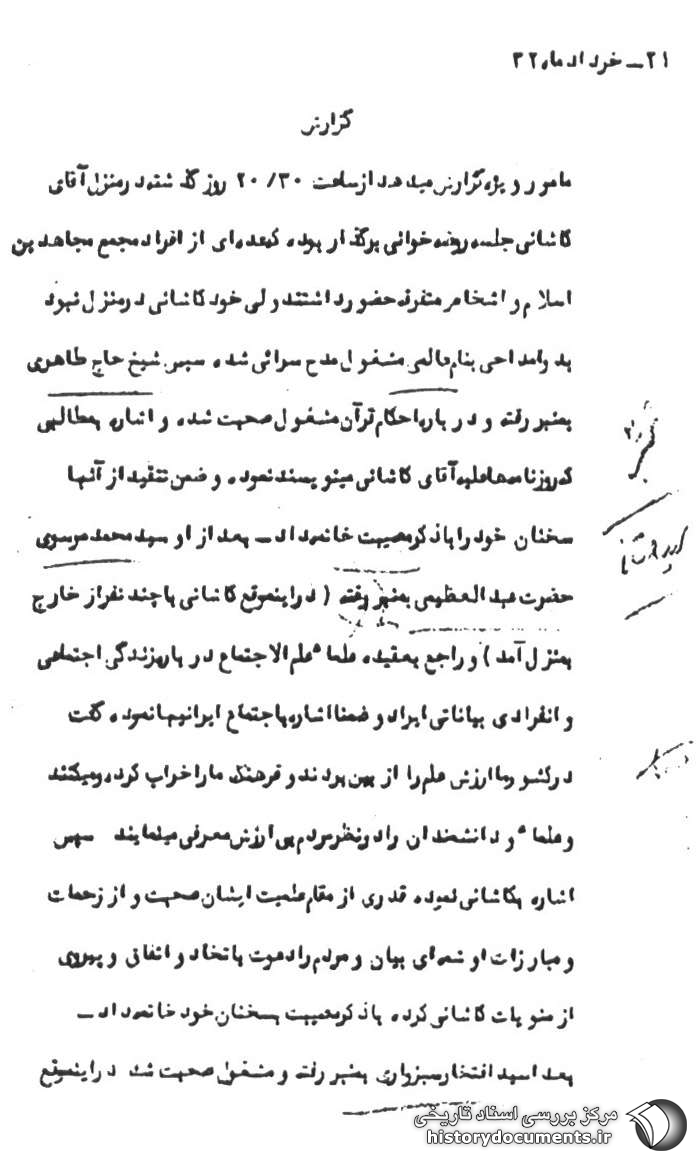 ۲۱ـ خرداد ماه ۳۲
گزارش
مامور ویژه گزارش میدهد از ساعت ۲۰/۳۰ روز گذشته در منزل آقای
کاشانی جلسه روضه خوانی برگذار بوده که عده ای از افراد مجمع مجاهدین
اسلام و اشخاص متفرقه حضور داشتند ولی خود کاشانی در منزل نبود
بدوا مداحی بنام مشغول مدح سرائی شده سپس شیخ حاج طاهری
بمنبر رفته و درباره احکام قرآن مشغول صحبت شده و اشاره بمطالبی
که روزنامه ها علیه آقای کاشانی مینویسند نموده و ضمن تنقید از آنها
سخنان خود را با ذکر مصیبت خاتمه داد ـ بعد از او سید محمد موسوی
حضرت عبدالعظیمی بمنبر رفته ( در اینموقع کاشانی با چند نفر از خارج
بمنزل آمد ) و راجع بعقیده علماء علم الاجتماع درباره زندگی اجتماعی
و انفرادی بیاناتی ایراد و ضمنا اشاره باجتماع ایرانیها نموده گفت
در کشور ما ارزش علم را از بین بردند و فرهنگ ما را خراب کرده ومیکنند
و علماء و دانشمندان را در نظر مردم بی ارزش معرفی مینمایند سپس
اشاره بکاشانی نموده قدری از مقام علمیت ایشان صحبت و از زحمات
و مبارزات او شمه ای بیان و مردم را دعوت باتحاد و اتفاق و پیروی
از منویات کاشانی کرده با ذکر مصیبت بسخنان خود خاتمه داد ـ
بعدا سید افتخار سبزواری بمنبر رفته و مشغول صحبت شد در اینموقع
مرکز بررسی اسناد تاریخی
historydocuments.ir